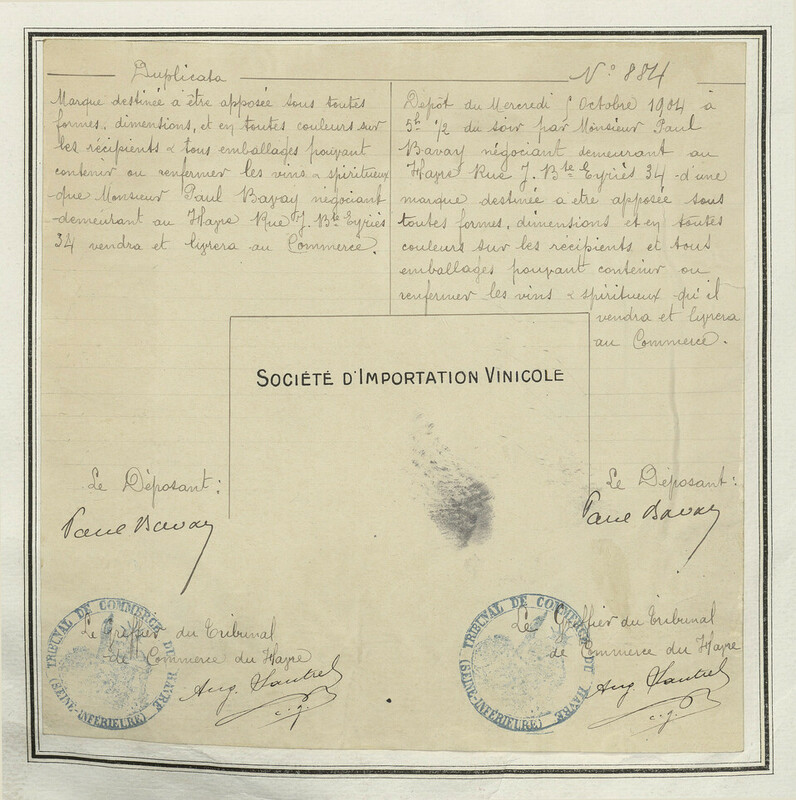 Duplicata
Nº 884
Marque destinée à être apposée sous toutes
formes, dimensions, et en toutes couleurs sur
les récipients & tous emballages pouvant
contenir ou renfermer les vins & spiritueux
que Monsieur Paul Bavay négociant
demeurant au Havre Rue J. Bte Eyriès
34 vendra et livrera au Commerce.
Dépôt du Mercredi 5 Octobre 1904 à
5h 1/2 du soir par Monsieur Paul
Bavay négociant demeurant au
Havre Rue J. Bte Eyriès 34 d'une
marque destinée a être apposée sous
toutes formes, dimensions et en toutes
couleurs sur les récipients et tous
emballages pouvant contenir ou
renfermer les vins & spiritueux qu'il
vendra et livrera
au Commerce.
SOCIÉTÉ D'IMPORTATION VINICOLE
Le Déposant:
Paul Bavay
Le Déposant:
Paul Bavay
Le Greffier du Tribunal
de Commerce du Havre
Aug.
c. g.
TRIBUNAL DE COMMERCE DU HAVRE
(SEINE-INFÉRIEURE)
Le Greffier du Tribunal
de Commerce du Havre
Aug.
c. g.
TRIBUNAL DE COMMERCE DU HAVRE
(SEINE-INFÉRIEURE)